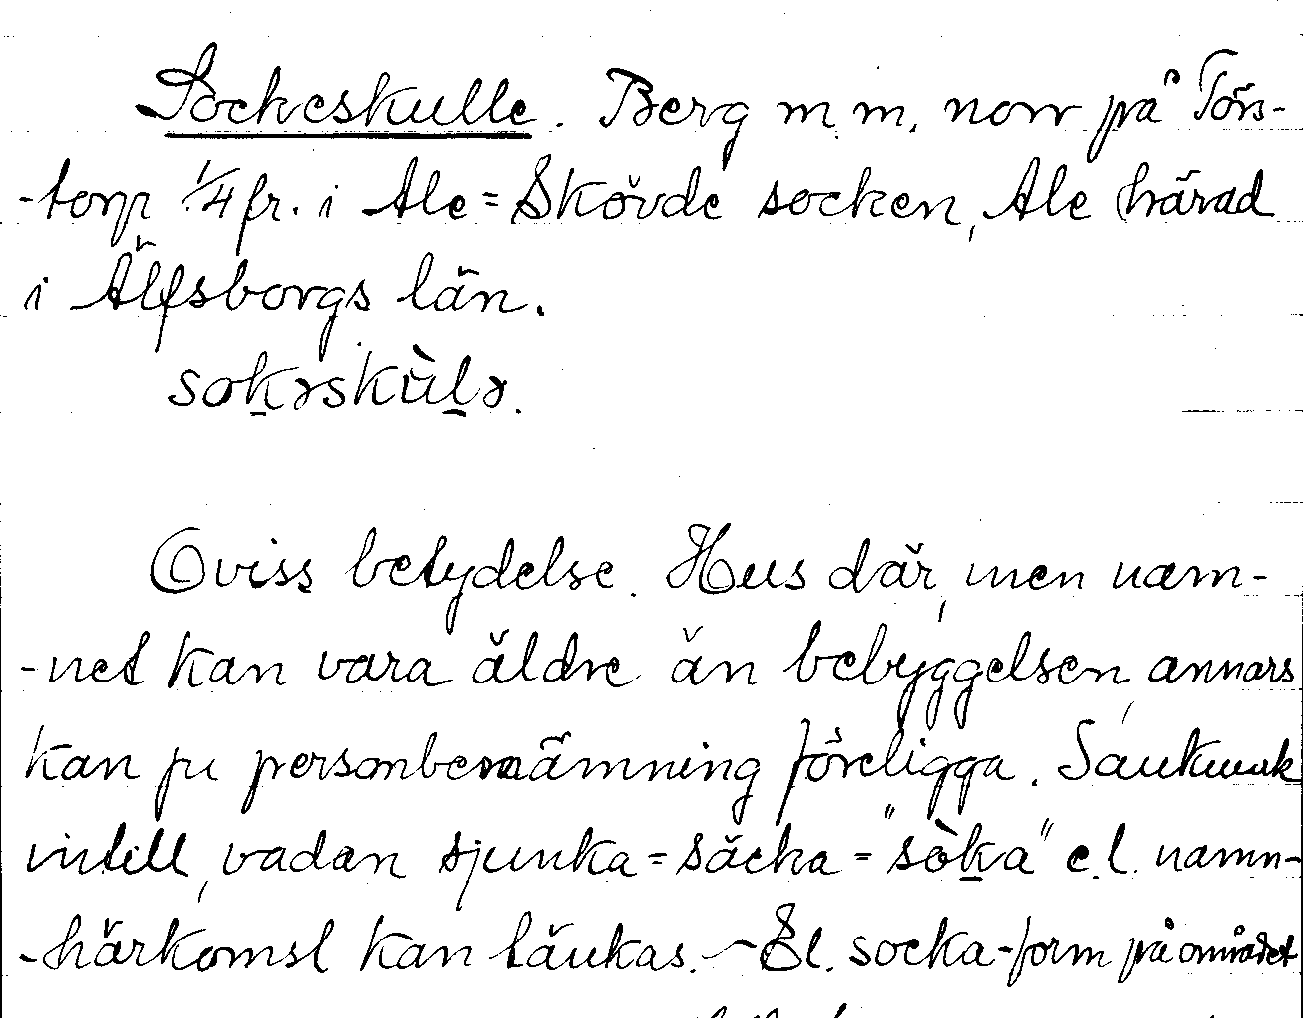 Sockeskulle. Berg m m, norr på Törs-
-torp 1/4 fr. i Ale=Skövde socken, Ale härad
i Älfsborgs län.
sok̲əskùl̲ə.
Oviss betydelse. Hus där, men nam-
-net kan vara äldre än bebyggelsen, annars
kan ju personbenämning föreligga. Sankmark
intill, vadan sjunka=säcka="sòk̲a" e.l. namn-
-härkomst kan tänkas. – El. socka-form på området